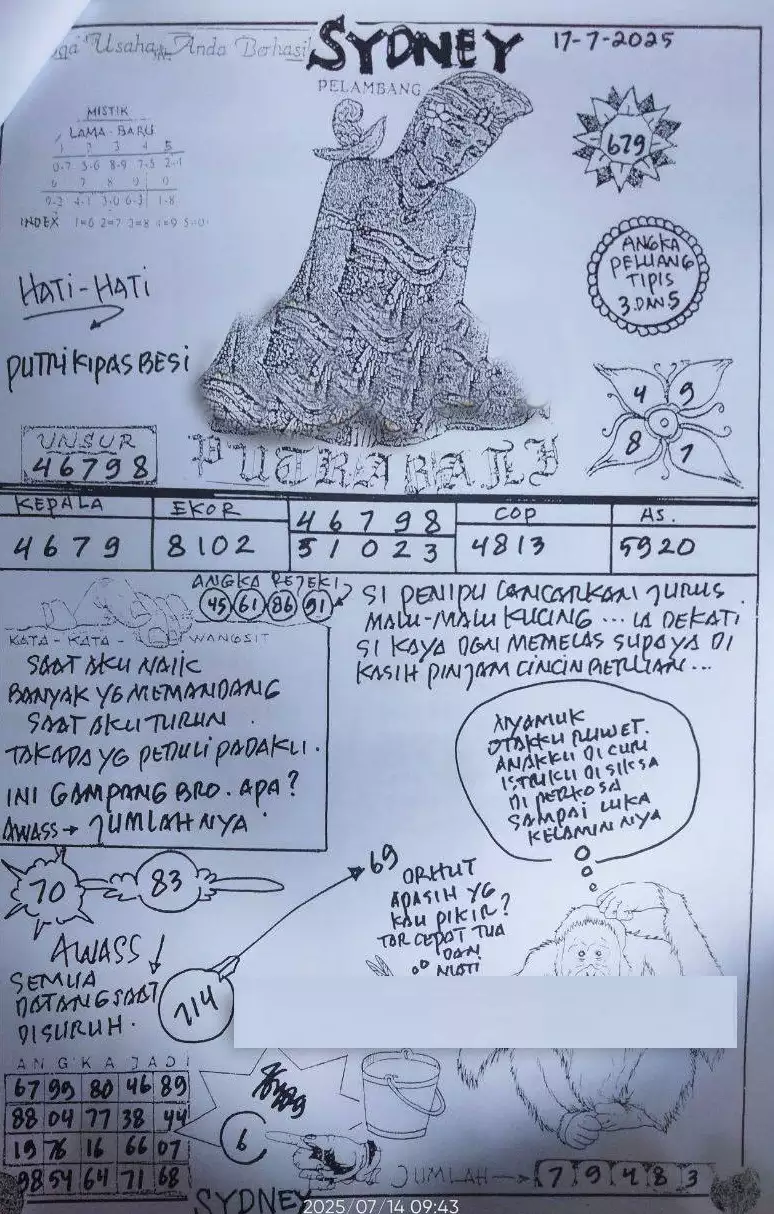 Usaha Anda Berhasil
SYDNEY
17-7-2025
PELAMBANG
MISTIK
LAMA - BARU
1 2 3 4 5
0-7 5-6 8-9 7-5 2-1
6 7 8 9 0
9-2 4-1 3-0 6-3 1-8
INDEX 1=6 2=7 3=8 4=9 5=0
679
ANGKA
PELUANG
TIPIS
3 DAN 5
HATI-HATI
PUTRI KIPAS BESI
4 9
8 7
UNSUR
46798
PUTRA BALI
KEPALA
4679
EKOR
8102
46798
51023
COP
4813
AS.
5920
ANGKA REJEKI
45 61 86 91
KATA-KATA-WANGSIT
SAAT AKU NAIK
BANYAK YG MEMANDANG
SAAT AKU TURUN
TAKADA YG PEDULI PADAKU.
INI GAMPANG BRO. APA?
AWASS → JUMLAHNYA
SI PENIPU LANCARKAN JURUS
MALU-MALU KUCING... IA DEKATI
SI KAYA DGN MEMELAS SUPAYA DI
KASIH PINJAM CINCIN BERLIAN...
NYAMUK
OTAKKU RUWET.
ANAKKU DI CURI
ISTRIKU DISIKSA
DI PERKOSA
SAMPAI LUKA
KELAMINNYA
70
83
69
ORHUT
APASIH YG
KAU PIKIR?
TAR CEPAT TUA
DAN
MATI
AWASS
SEMUA
DATANG SAAT
DISURUH.
714
ANGKA JADI
67 99 80 46 89
88 04 77 38 44
19 76 16 66 07
98 54 64 71 68
6
JUMLAH → 7 9 4 8 3
SYDNEY
2025/07/14 09:43